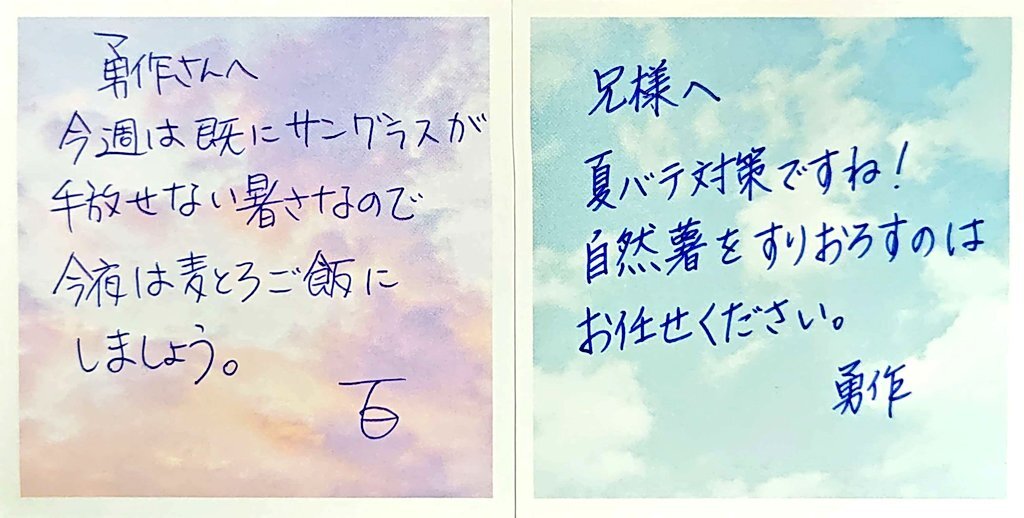 勇作さんへ
今週は既にサングラスが
手放せない暑さなので
今夜は麦とろご飯に
しましょう。
百
兄様へ
夏バテ対策ですね!
自然薯をすりおろすのは
お任せください。
勇作